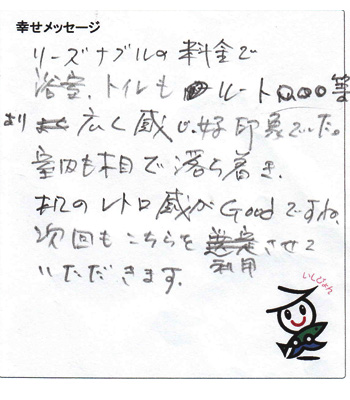 幸せメッセージ
リーズナブルの料金で
浴室、トイレもルートinn等
より広く感じ好印象でした。
室内も木目で落ち着き、
机のレトロ感がGoodですね。
次回もこちらを利用させて
いただきます。
いしぴょん